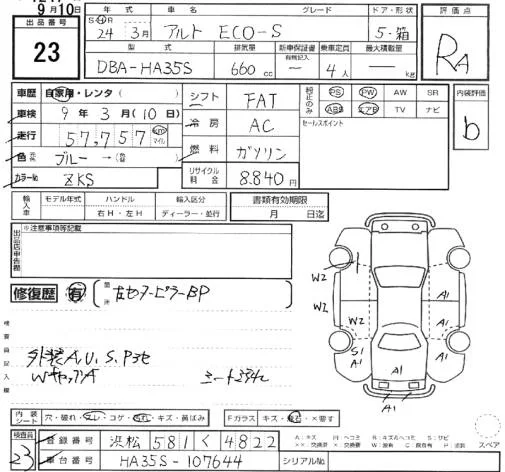 9月10日
出品番号 23
年式 車名 グレード ドア・形状 評価点
S・H・R 24年 3月 アルト ECO-S 5・箱 RA
型式 排気量 新車保証書 乗車定員 最大積載量
DBA-HA35S 660cc 有無記入 ― 4人 ― kg
車歴 自家用・レンタ( ) シフト FAT 純正のみ PS PW AW SR 内装評価
車検 9年 3月(10日) 冷房 AC ABS エアB TV ナビ b
走行 57,757 km マイル セールスポイント
色 元色 ブルー→(色替 ) 燃料 ガソリン
カラーNo ZKS リサイクル料金 8.840円
輸入車 モデル年式 ハンドル 輸入区分 書類有効期限
年 右H・左H ディーラー・並行 月 日迄
出品店申告欄 ※注意事項等記載
修復歴 有 箇所 左センターピラーBP
検査員記入欄
外装A,U,S,P他
WキャップA シートコゲ穴
W2
W2
W2
S1
A1
A1
A1
A1
A1
A1
内装シート 穴・破れ・スレ・コゲ・汚れ・キズ・黄ばみ Fガラス キズ・飛石・×要す
検査員 23 登録番号 浜松 581 く 4822
車台番号 HA35S-107644 シリアルNo.
A:キズ U:ヘコミ B:キズ&ヘコミ S:サビ
××:交換済 ×:要交換 W:波有 C:腐食有 P:塗装 スペア